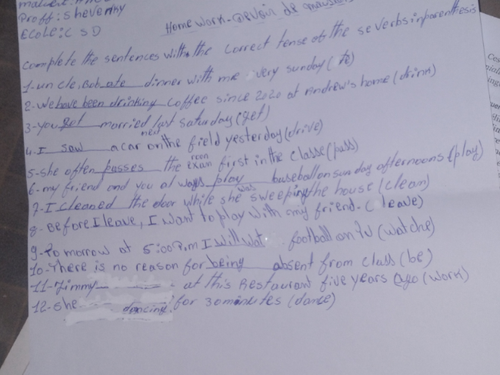 Proff: Shevenky
Ecole: C S D
Home work - Devoir de
complete the sentences with the correct tense of the se verbs in parenthesis
1. uncle Bob ate dinner with me very sunday (
2. we have been drinking coffee since 2020 at Andrew's home (drinn)
3- you get married last saturday (get)
4. I saw a car on the field yesterday (drive)
5- she often passes the exam first in the classe (pass)
6- my friend and you al ways play baseball on sunday afternoons (play)
7- I cleaned the door while she was sweeping the house (clean)
8- Before I leave, I want to play with my friend. ( leave)
9- To morrow at 5:00 P.m I will wat football on TV (watche)
10- There is no reason for being absent from class (be)
11- Jimmy at this Restaurant five years ago (work)
12- She dancing for 30 minutes (dance)